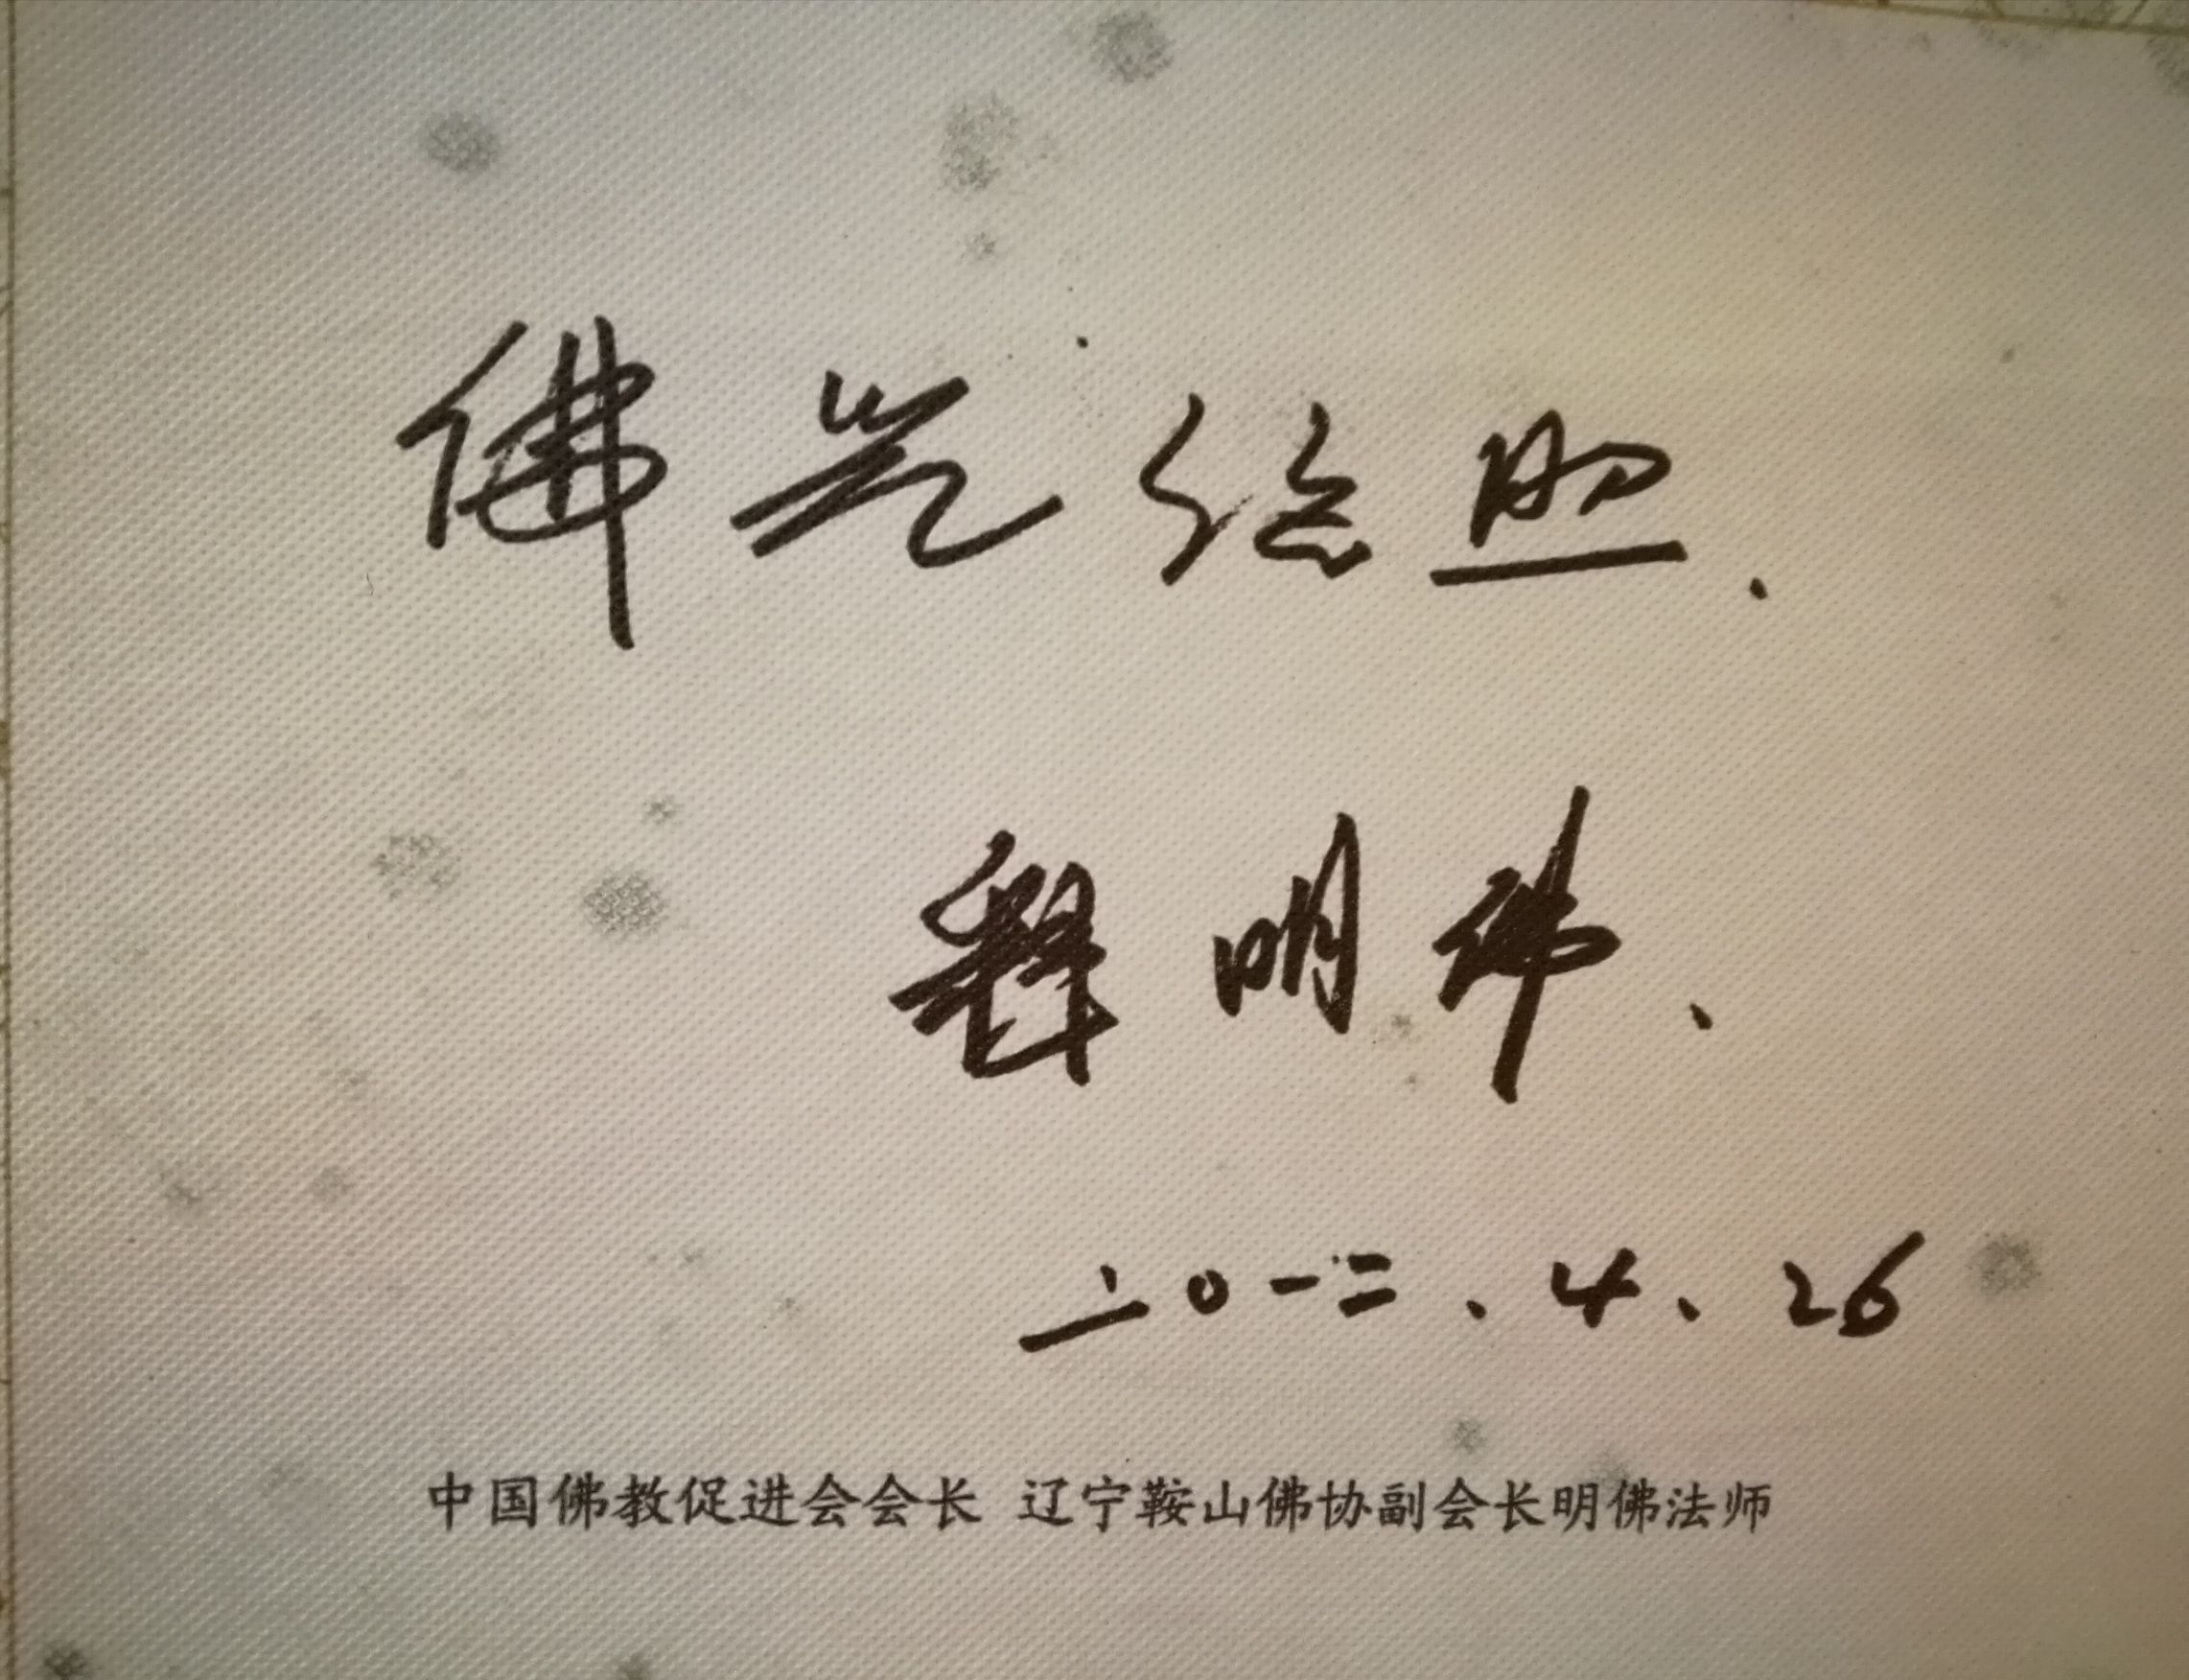 佛光绘照.
释明佛、
二〇一二、4、26
中国佛教促进会会长 辽宁鞍山佛协副会长明佛法师